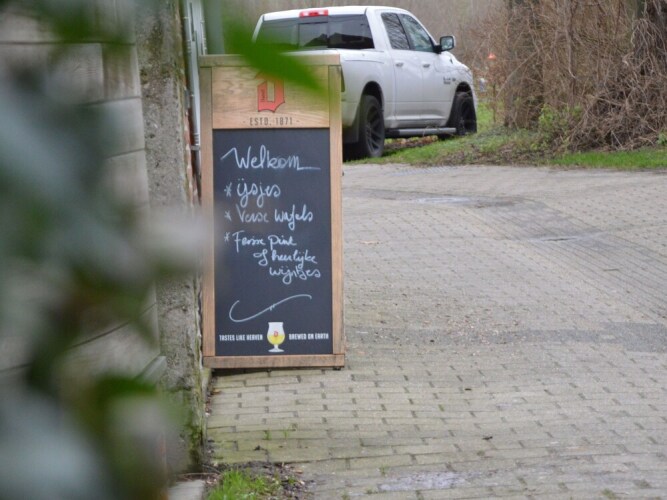 D
· ESTD. 1871 ·
Welkom
* ijsjes
* Verse wafels
* Frisse pint
of heerlijke
wijntjes
TASTES LIKE HEAVEN BREWED ON EARTH